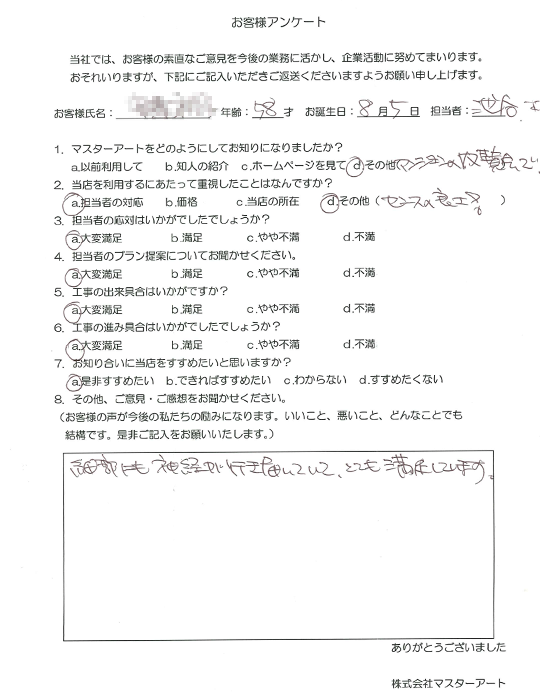 お客様アンケート
当社では、お客様の素直なご意見を今後の業務に活かし、企業活動に努めてまいります。
おそれいりますが、下記にご記入いただきご返送くださいますようお願い申し上げます。
お客様氏名： 年齢：58才 お誕生日：8月5日 担当者：
1．マスターアートをどのようにしてお知りになりましたか？
a.以前利用して b.知人の紹介 c.ホームページを見て d.その他 マンションの内覧会で
2．当店を利用するにあたって重視したことはなんですか？
a.担当者の対応 b.価格 c.当店の所在 d.その他（センスの良さ ）
3．担当者の応対はいかがでしたでしょうか？
a.大変満足 b.満足 c.やや不満 d.不満
4．担当者のプラン提案についてお聞かせください。
a.大変満足 b.満足 c.やや不満 d.不満
5．工事の出来具合はいかがですか？
a.大変満足 b.満足 c.やや不満 d.不満
6．工事の進み具合はいかがでしたでしょうか？
a.大変満足 b.満足 c.やや不満 d.不満
7．お知り合いに当店をすすめたいと思いますか？
a.是非すすめたい b.できればすすめたい c.わからない d.すすめたくない
8．その他、ご意見・ご感想をお聞かせください。
（お客様の声が今後の私たちの励みになります。いいこと、悪いこと、どんなことでも
結構です。是非ご記入をお願いいたします。）
細部にも神経が行き届いていて、とても満足しています。
ありがとうございました
株式会社マスターアート